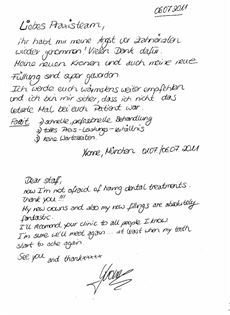 06.07.2011
Liebes Praxisteam,
ihr habt mir meine Angst vor Zahnärzten
wieder genommen! Vielen Dank dafür.
Meine neuen Kronen und auch meine neue
Füllung sind super geworden.
Ich werde euch wärmstens weiter empfehlen
und ich bin mir sicher, dass ich nicht das
letzte Mal bei euch Patient war.
Fazit: 1) schnelle, professionelle Behandlung
2) tolles Preis-Leistungs-verhältnis
3) keine Wartezeiten
Yvonne, München 01.07./06.07.2011
Dear staff,
now I'm not afraid of having dental treatments.
Thank you!!!
My new crowns and also my new fillings are absolutely
fantastic.
I'll recomend your clinic to all people I know.
I'm sure we'll meet again... at least when my teeth
start to ache again.
See you and thankxxxx
Yvonne